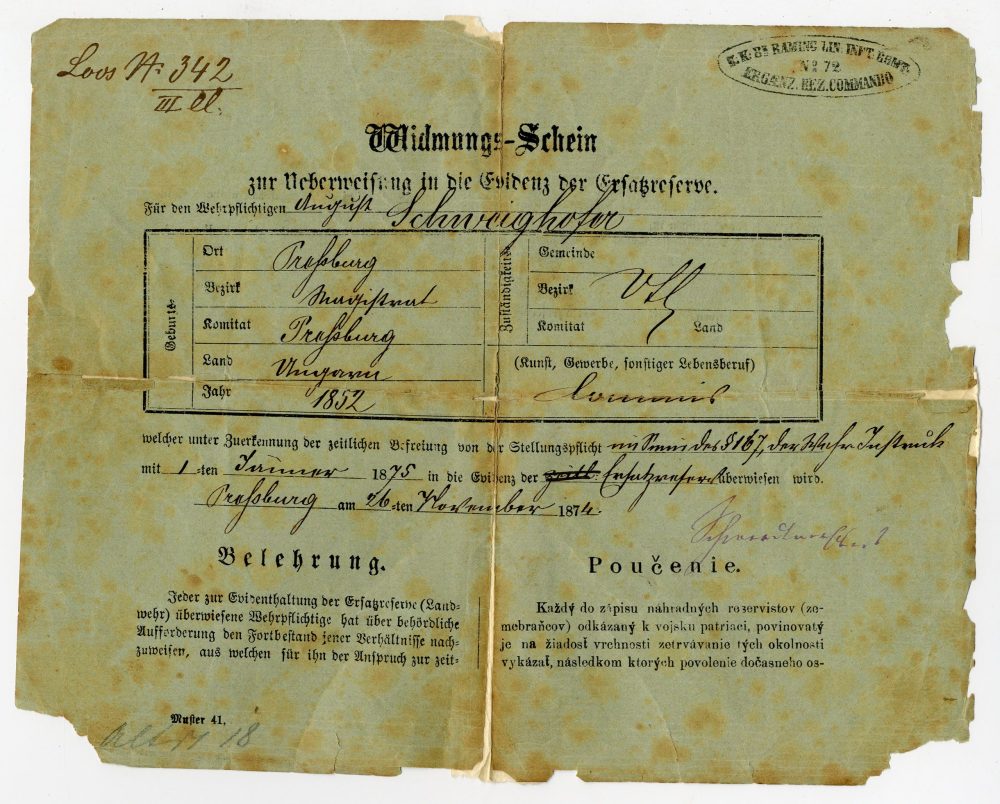 Loos Nr. 342
III Cl.
K. K. Bn RAMING LIN. INFT. RGMT.
No 72
ERGÆNZ. BEZ. COMMANDO
Widmungs-Schein
zur Ueberweisung in die Evidenz der Ersatzreserve.
Für den Wehrpflichtigen August Schweighofer
Geburts-
Ort Preßburg
Bezirk Magistrat
Komitat Preßburg
Land Ungarn
Jahr 1852
Zuständigkeits-
Gemeinde
Bezirk
Komitat Land
(Kunst, Gewerbe, sonstiger Lebensberuf)
Commis
welcher unter Zuerkennung der zeitlichen Befreiung von der Stellungspflicht im Sinne des § 167, der Wehr Instruk
mit 1-ten Jänner 1875 in die Evidenz der zeitl. Ersatzreserve überwiesen wird.
Preßburg am 26-ten November 1874.
Belehrung.
Jeder zur Evidenthaltung der Ersatzreserve (Land-
wehr) überwiesene Wehrpflichtige hat über behördliche
Aufforderung den Fortbestand jener Verhältnisse nach-
zuweisen, aus welchen für ihn der Anspruch zur zeit-
Poučenie.
Každý do zápisu náhradných rezervistov (ze-
mebraňcov) odkázaný k vojsku patriaci, povinovatý
je na žiadosť vrchnosti zetrvávanie tých okolností
vykázať, následkom ktorých povolenie dočasneho os-
Muster 41.